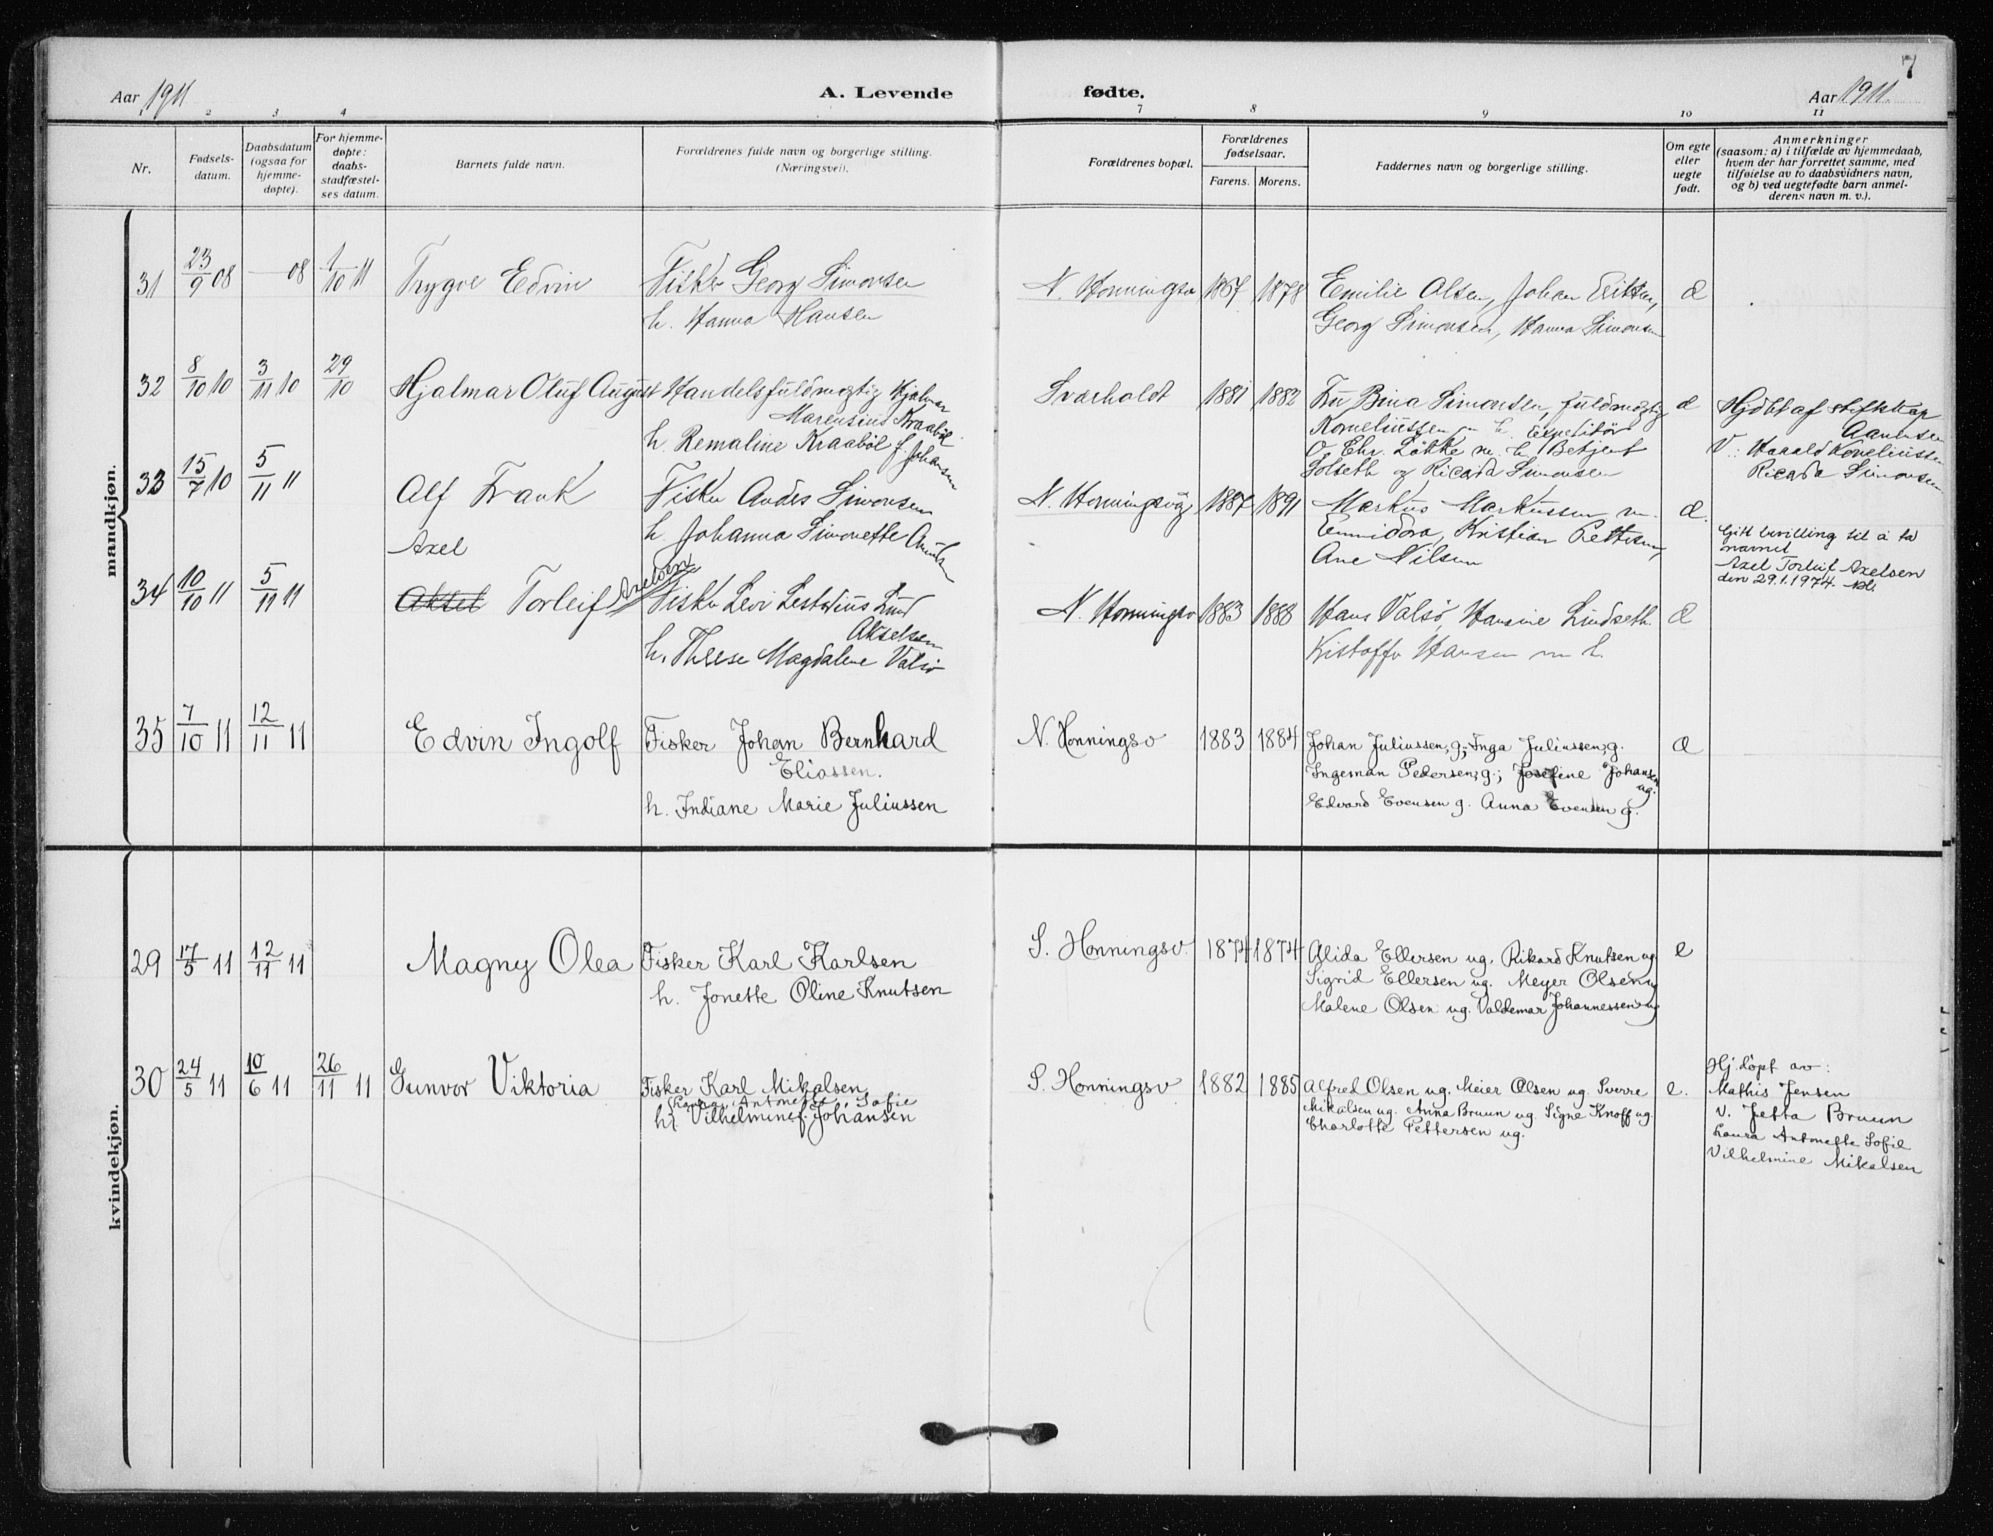 7
Aar 1911 A. Levende fødte. Aar 1911
1 2 3 4 7 8 9 10 11
Nr.
Fødsels-
datum.
Daabsdatum
(ogsaa for
hjemme-
døpte).
For hjemme-
døpte:
daabs-
stadfæstel-
ses datum.
Barnets fulde navn.
Forældrenes fulde navn og borgerlige stilling.
(Næringsvei).
Forældrenes bopæl.
Forældrenes
fødselsaar.
Farens. Morens.
Faddernes navn og borgerlige stilling.
Om egte
eller
uegte
født.
Anmerkninger
(saasom: a) i tilfælde av hjemmedaab,
hvem der har forrettet samme, med
tilføielse av to daabsvidners navn,
og b) ved uegtefødte barn anmel-
derens navn m. v.).
mandkjøn.
31 23/9 08 — 08 1/10 11 Trygve Edvin Fisker Georg Simonsen N. Honningsv 1878 Emilie Olsen, Johan
h. Hanna Hansen Georg Simonsen, Hanna Simonsen
32 8/10 10 3/11 10 29/10 Hjalmar Oluf August Handelsfuldmegtig Hjalmar Sværholdt 1881 1882 Fru Bina Simonsen, fuldmegtig
Marensius Kraabøl Korneliussen m. h. Expeditør
h. Remaline Kraabøl f. Johansen O. Chr. Løkke m. h. Betjent
Solseth og Ricarda Simonsen
V.: Harald Korneliussen
Ricarda Simonsen
33 15/7 10 5/11 11 Alf Frank Fisker Andes Simonsen N. Honningsvåg 1887 1891 Markus Markussen m.
h. Johanna Simonette Kristian Pettersen,
Ane Nilsen
Gitt bevilling til å ta
navnet
Axel Torleif Axelsen
den 29.1.1974.
Axel
34 10/10 11 5/11 11 Aksel Torleif Axelsen Fisker Levi Lestadius Lund N. Honningsv 1883 1888 Hans Valsø, Hansine Lindseth
Akselsen
h. Therese Magdalene Valsø Kristoffer Hansen m h.
35 7/10 11 12/11 11 Edvin Ingolf Fisker Johan Bernhard N. Honningsv 1883 1884 Johan Juliussen, g; Inga Juliussen, g.
Eliassen. Ingeman Pedersen, g.; Josefine Johansen ug.
h. Indiane Marie Juliussen Edvard Evensen g. Anna Evensen g.
kvindekjøn.
29 17/5 11 12/11 11 Magny Olea Fisker Karl Karlsen S. Honningsv. 1874 1874 Alida Ellersen ug. Rikard Knutsen ug e
h. Jonette Oline Knutsen Sigrid Ellersen ug. Meyer Olsen ug
Malene Olsen ug. Valdemar Johannessen ug
30 24/5 11 10/6 11 26/11 11 Gunvor Viktoria Fisker Karl Mikalsen S. Honningsv 1882 1885 Alfred Olsen ug. Meier Olsen ug Sverre e.
Laura Antonette Sofie
h. Vilhelmine f. Johansen Mikalsen ug. Anna Bruun ug. Signe Knoff ug.
Charlotte Pettersen ug.
Hj.døpt av:
Mathis Jensen
v. Jetta Bruun
Laura Antonette Sofie
Vilhelmine Mikalsen